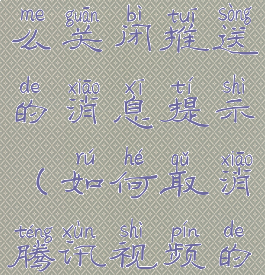 me guān bì tuī sòng
么关闭推送
de xiāo xī tí shì
的消息提示
rú hé qǔ xiāo
（如何取消
téng xùn shì pín de
腾讯视频的